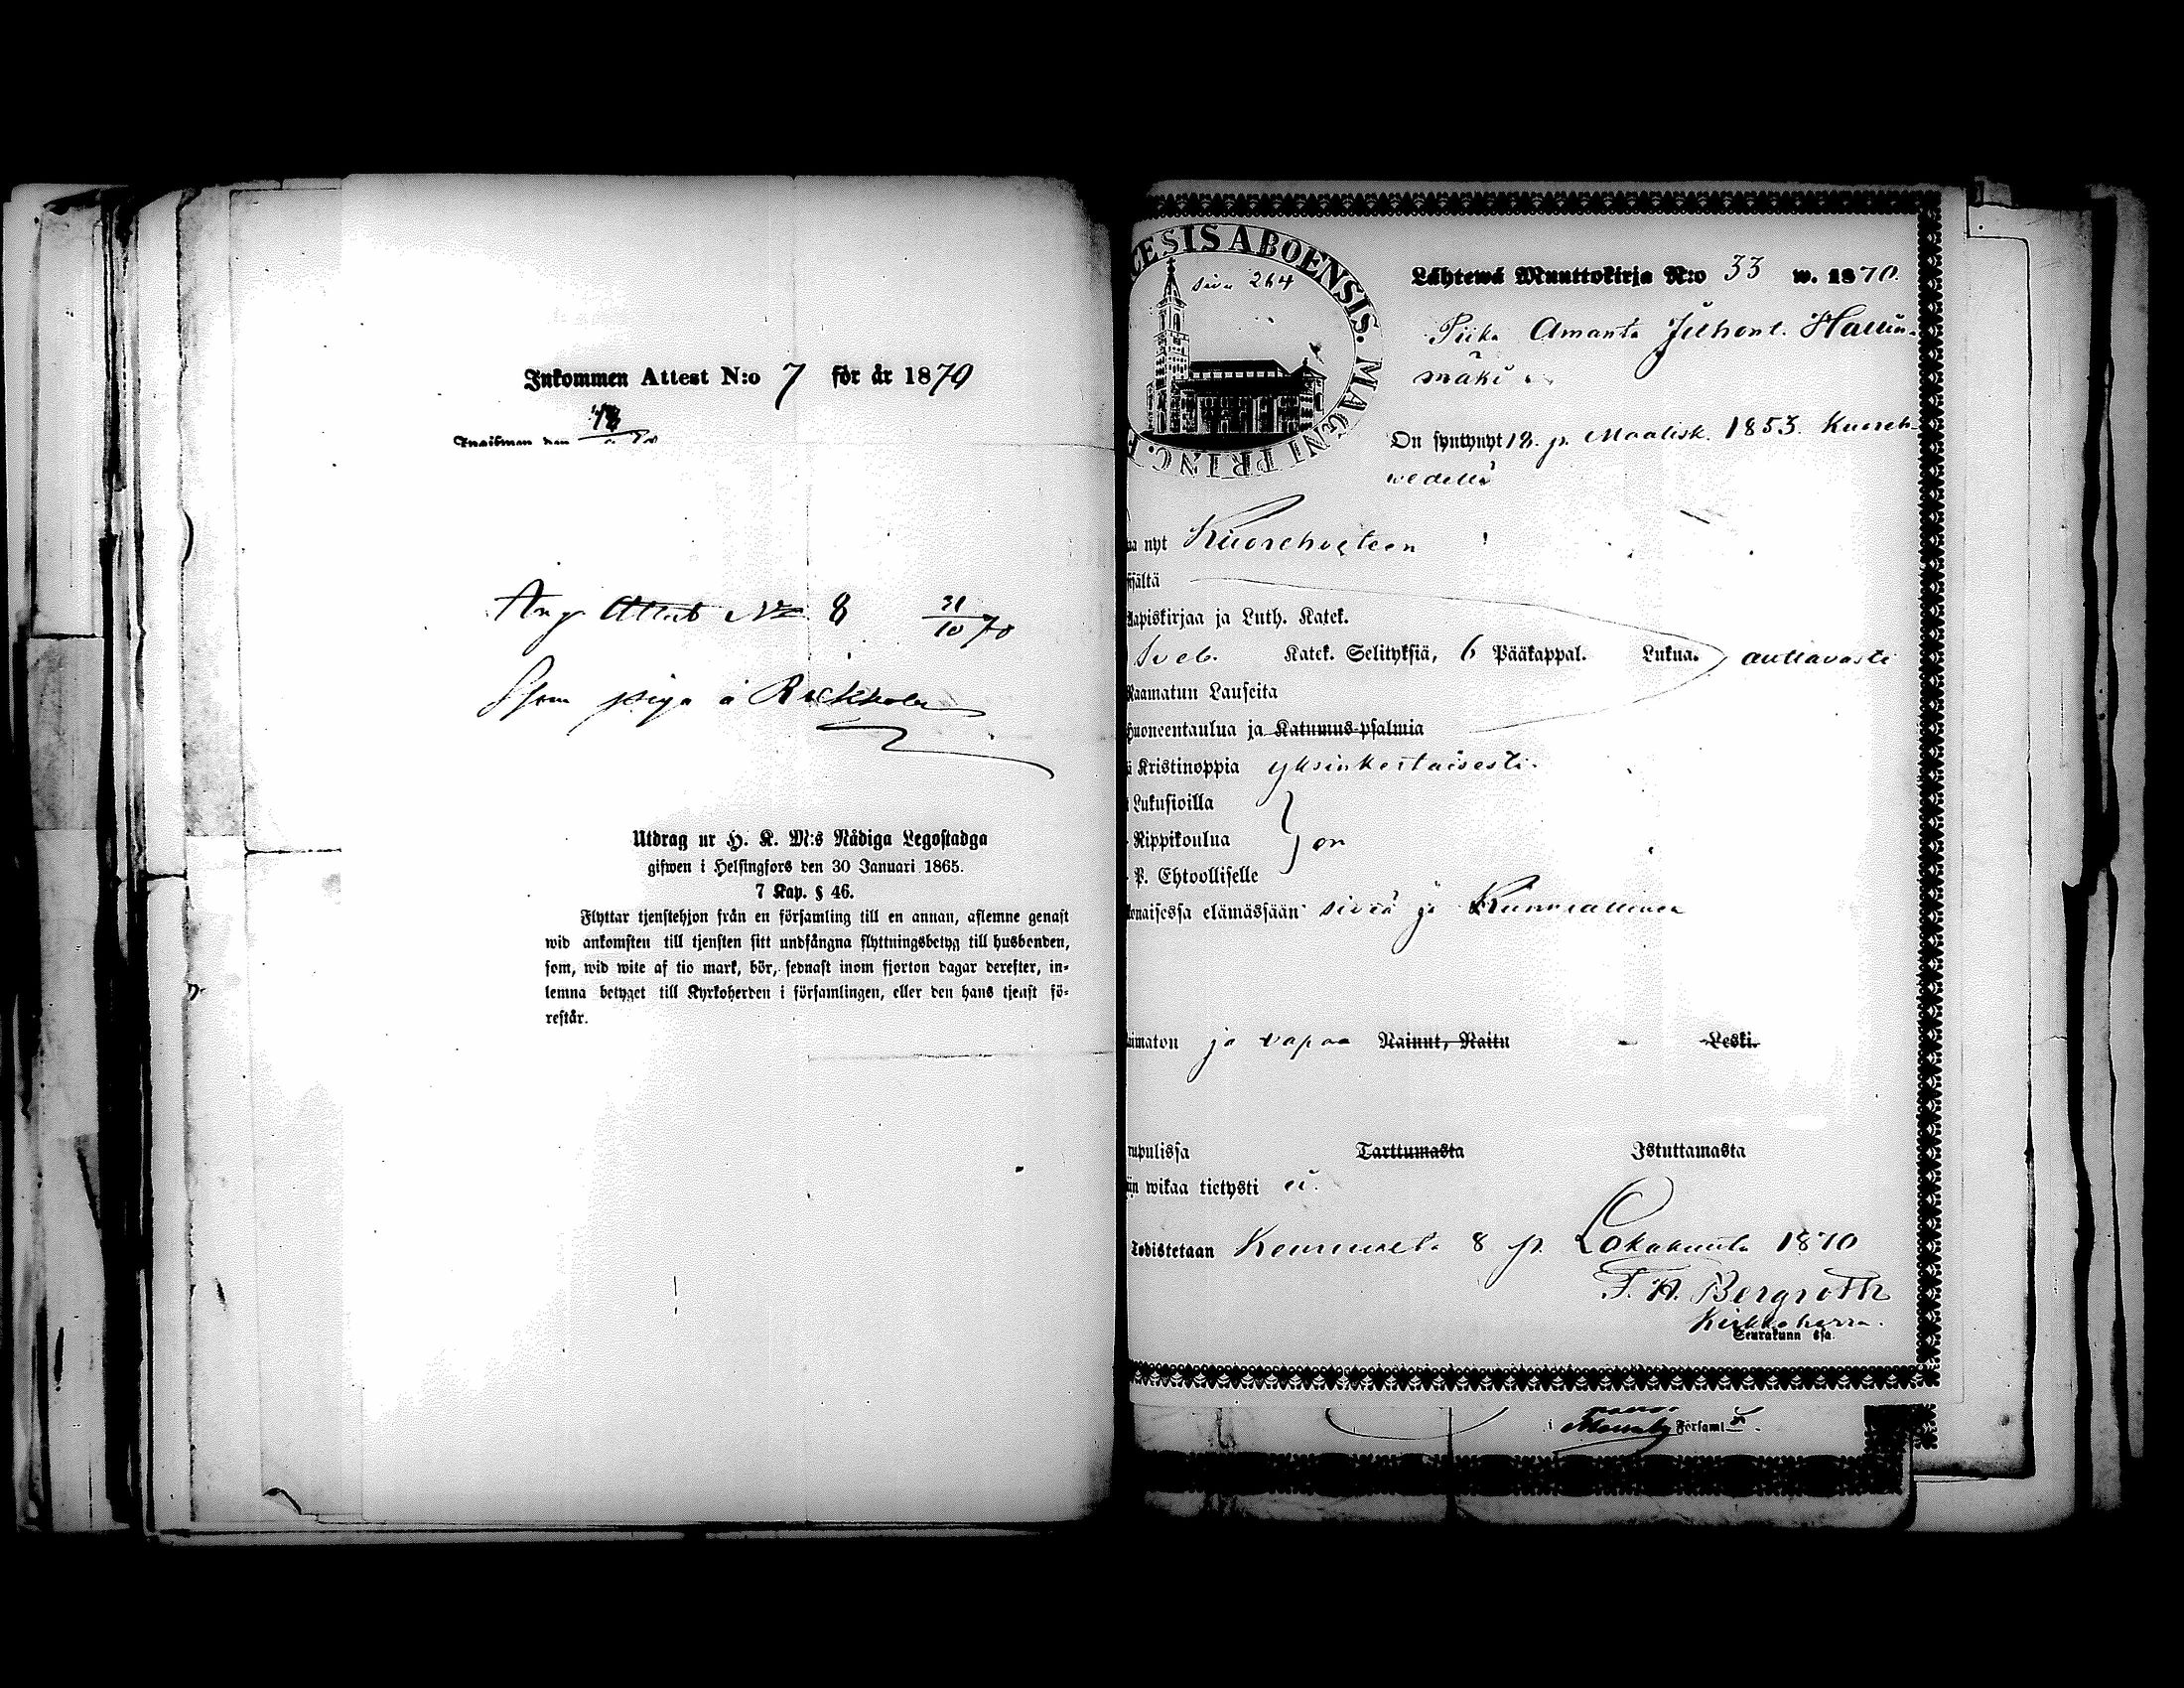 Inkommen Attest N:o 7 för år 1870
Ank. Attest No 8 31/10 70
Som piga å
Utdrag ur H. K. M:s Nådiga Legostadga
gifwen i Helsingfors den 30 Januari 1865.
7 Kap. § 46.
Flyttar tjenstehjon från en församling till en annan, aflemne genast
wid ankomsten till tjensten sitt undfångna flyttningsbetyg till husbonden,
som, wid wite af tio mark, bör, sednast inom fjorton dagar derefter, in-
lemna betyget till Kyrkoherden i församlingen, eller den hans tjenst fö-
restår.
CESIS ABOENSIS. MAGNI PRINC. F
siwu 264
Lähtewä Muuttokirja N:o 33 w. 1870.
Piika Amanta Juhont. Hallin-
mäki
On syntynyt 18. p. Maalisk. 1853. Kuoreh-
wedellä
aa nyt Kuorehweteen
sisältä
Aapiskirjaa ja Luth. Katek.
Sveb. Katek. Selityksiä, 6 Pääkappal. Lukua. auttavasti
Raamatun Lauseita
Huoneentaulua ja Katumus-psalmia
ä Kristinoppia yksinkertaisesti.
Lukusioilla
Rippikoulua on
P. Ehtoolliselle
onaisessa elämässään siviä ja Kunniallinen
aimaton ja vapaa Nainut, Naitu Leski.
rupulissa Tarttumasta Istuttamasta
än wikaa tietysti ei.
Todistetaan Keuruulta 8 p. Lokakuuta 1870
F. H. Bergroth
Kirkkoherra.
Seurakunn ssa.
i Församl